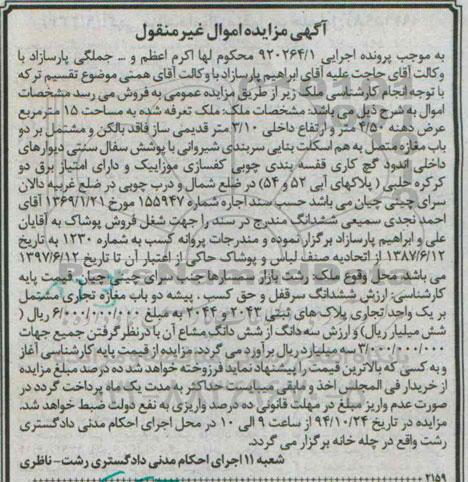 آگهی مزایده اموال غیر منقول
به موجب پرونده اجرایی ۹۲۰۲۶۴/۱ محکوم لها اکرم اعظم و ... جملگی پارسازاد با
وکالت آقای حاجت علیه آقای ابراهیم پارسازاد با وکالت آقای همتی موضوع تقسیم ترکه
با توجه انجام کارشناسی ملک زیر از طریق مزایده عمومی به فروش می رسد مشخصات
اموال به شرح ذیل می باشد: مشخصات ملک: ملک تعرفه شده به مساحت ۱۵ مترمربع
عرض دهنه ۴/۵۰ متر و ارتفاع داخلی ۳/۱۰ متر قدیمی ساز فاقد بالکن و مشتمل بر دو
باب مغازه متصل به هم اسکلت بنایی سربندی شیروانی با پوشش سفال سنتی دیوارهای
داخلی اندود گچ کاری قفسه بندی چوبی کفسازی موزاییک و دارای امتیاز برق دو
کرکره حلبی ( پلاکهای آبی ۵۲ و ۵۴) در ضلع شمال و درب چوبی در ضلع غربیه دالان
سرای چینی چیان می باشد حسب سند اجاره شماره ۱۵۵۹۴۷ مورخ ۱۳۶۹/۱/۲۱ آقای
احمد نجدی سمیعی ششدانگ مندرج در سند را جهت شغل فروش پوشاک به آقایان
علی و ابراهیم پارسازاد برگزار نموده و مندرجات پروانه کسب به شماره ۱۲۳۰ به تاریخ
۱۳۸۷/۶/۱۲ از اتحادیه صنف لباس و پوشاک حاکی از اعتبار آن تا تاریخ ۱۳۹۷/۶/۱۲
می باشد. محل وقوع ملک: رشت بازار سمسارها جنب سرای چینی چیان قیمت پایه
کارشناسی: ارزش ششدانگ سرقفل و حق کسب . پیشه دو باب مغازه تجاری مشتمل
بر یک واحد تجاری پلاک های ثبتی ۲۰۴۳ و ۲۰۴۴ به مبلغ ۶/۰۰۰/۰۰۰/۰۰۰ ریال (
شش میلیار ریال) و ارزش سه دانگ از شش دانگ مشاع آن با در نظر گرفتن جمیع جهات
۳/۰۰۰/۰۰۰/۰۰۰ سه میلیارد ریال برآورد می گردد. مزایده از قیمت پایه کارشناسی آغاز
و به کسی که بالاترین قیمت را پیشنهاد نماید فروخته خواهد شد ده درصد مبلغ مزایده
از خریدار فی المجلس اخذ و مابقی می بایست حداکثر به مدت یک ماه پرداخت گردد در
صورت عدم واریز مبلغ در مهلت قانونی ده درصد واریزی به نفع دولت ضبط خواهد شد.
مزایده در تاریخ ۹۴/۱۰/۲۴ از ساعت ۹ الی ۱۰ در محل اجرای احکام مدنی دادگستری
رشت واقع در چله خانه برگزار می گردد.
شعبه ۱۱ اجرای احکام مدنی دادگستری رشت- ناظری
۲۱۵۹